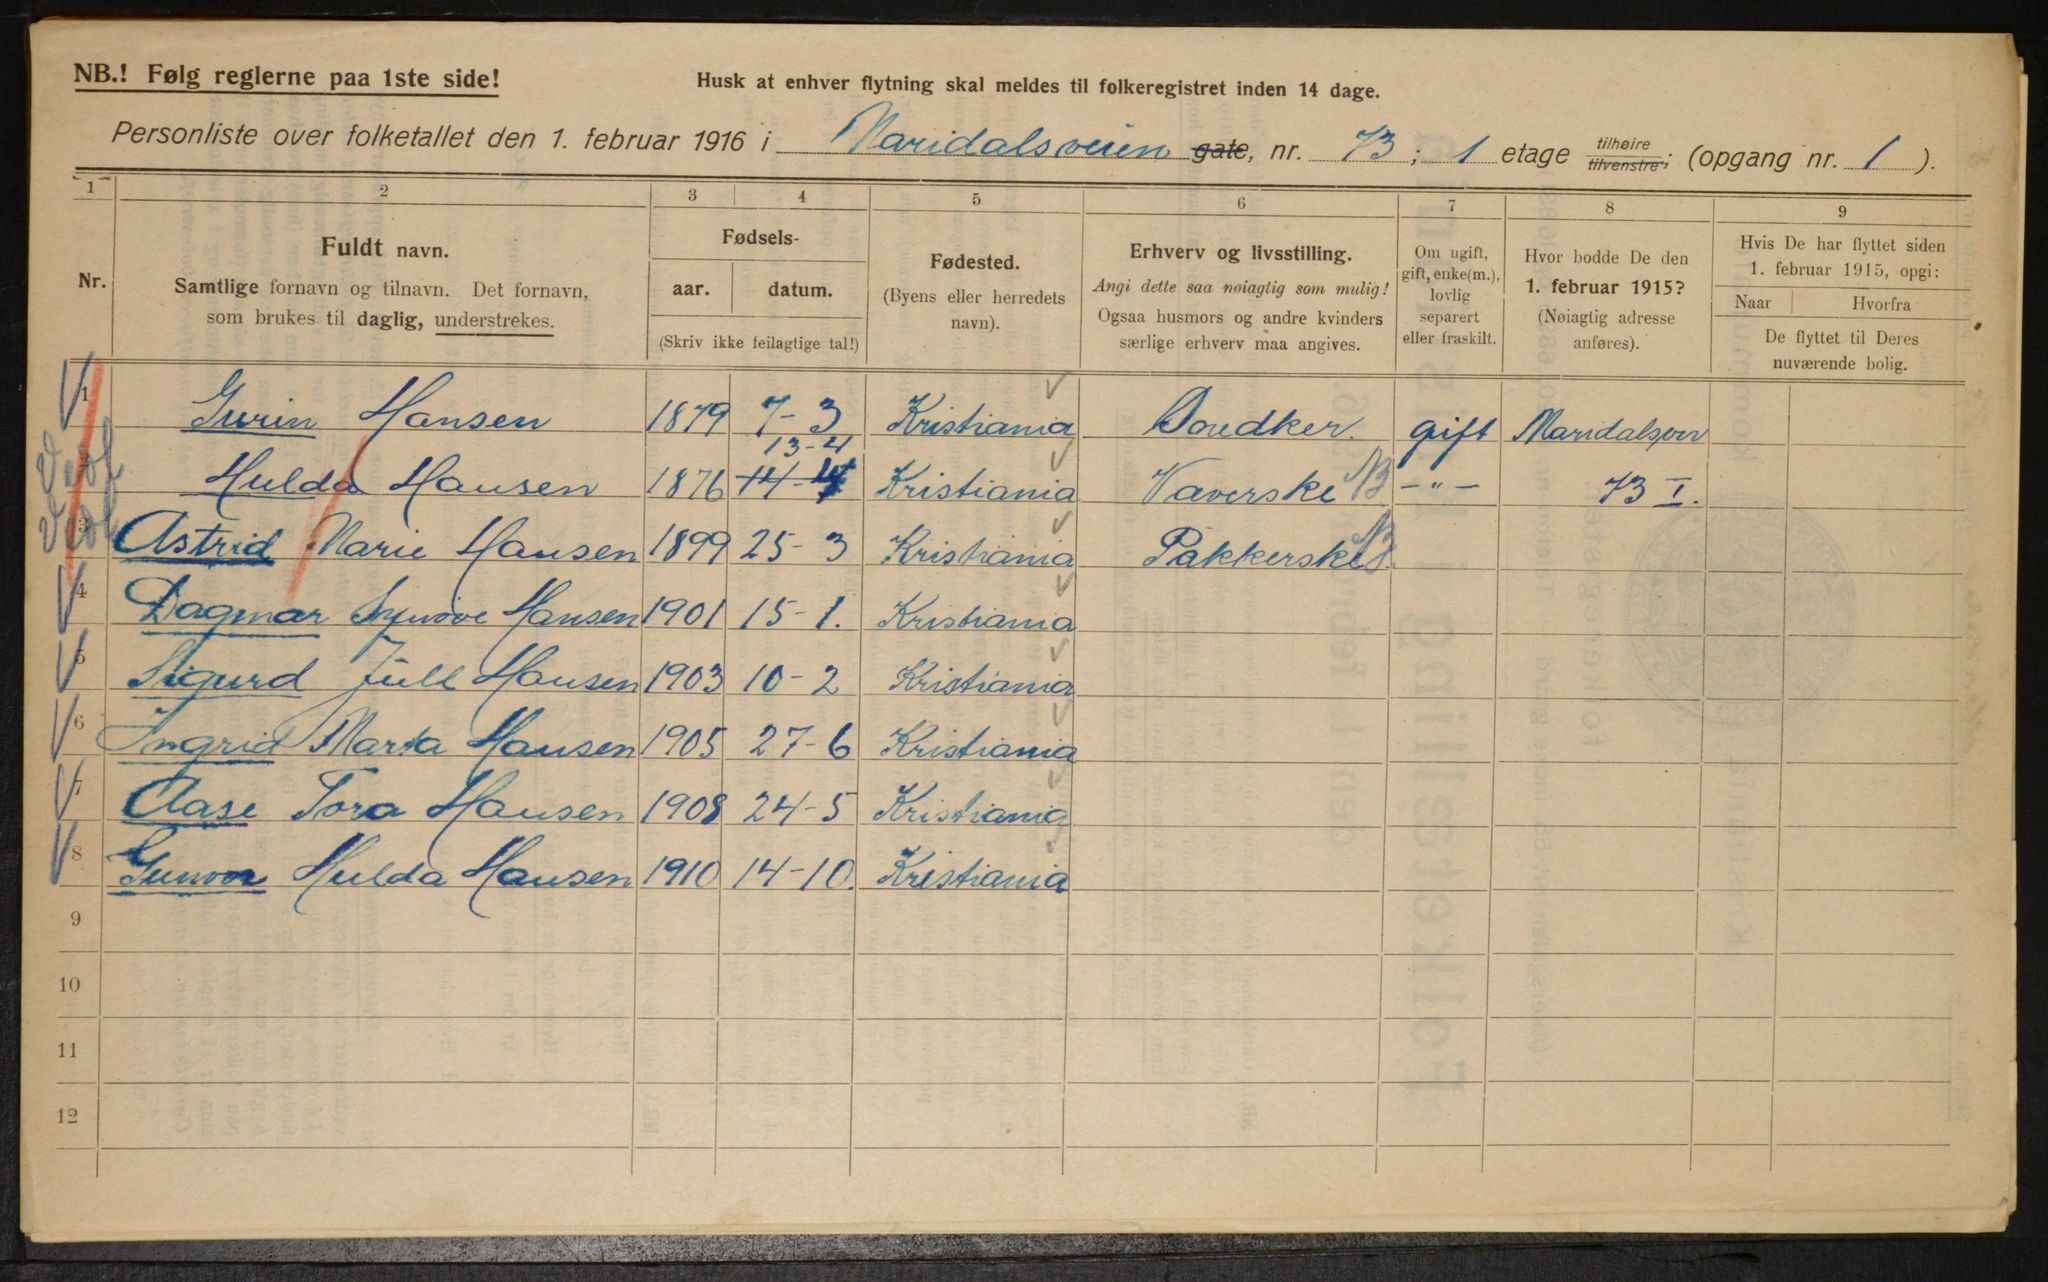 NB.! Følg reglerne paa 1ste side!
Husk at enhver flytning skal meldes til folkeregistret inden 14 dage.
Personliste over folketallet den 1. februar 1916 i Maridalsveien gate, nr. 73; 1 etage tilhøire tilvenstre; (opgang nr. 1).
1 2 3 4 5 6 7 8 9
Nr.
Fuldt navn.
Samtlige fornavn og tilnavn. Det fornavn,
som brukes til daglig, understrekes.
Fødsels-
aar. datum.
(Skriv ikke feilagtige tal!)
Fødested.
(Byens eller herredets
navn).
Erhverv og livsstilling.
Angi dette saa nøiagtig som mulig!
Ogsaa husmors og andre kvinders
særlige erhverv maa angives.
Om ugift,
gift, enke(m.),
lovlig
separert
eller fraskilt.
Hvor bodde De den
1. februar 1915?
(Nøiagtig adresse
anføres).
Hvis De har flyttet siden
1. februar 1915, opgi:
Naar Hvorfra
De flyttet til Deres
nuværende bolig.
1 Hansen 1879 7-3 Kristiania gift Maridalsvei
13-4
Hulda Hansen 1876 14-4 Kristiania Væverske -"- 73 I.
3 Astrid Marie Hansen 1899 25-3 Kristiania Pakkerske
4 Dagmar Synøve Hansen 1901 15-1. Kristiania
5 Sigurd Juell Hansen 1903 10-2 Kristiania
6 Ingrid Marta Hansen 1905 27-6 Kristiania
7 Aase Tora Hansen 1908 24-5 Kristiania
8 Gunvor Hulda Hansen 1910 14-10. Kristiania
9
10
11
12